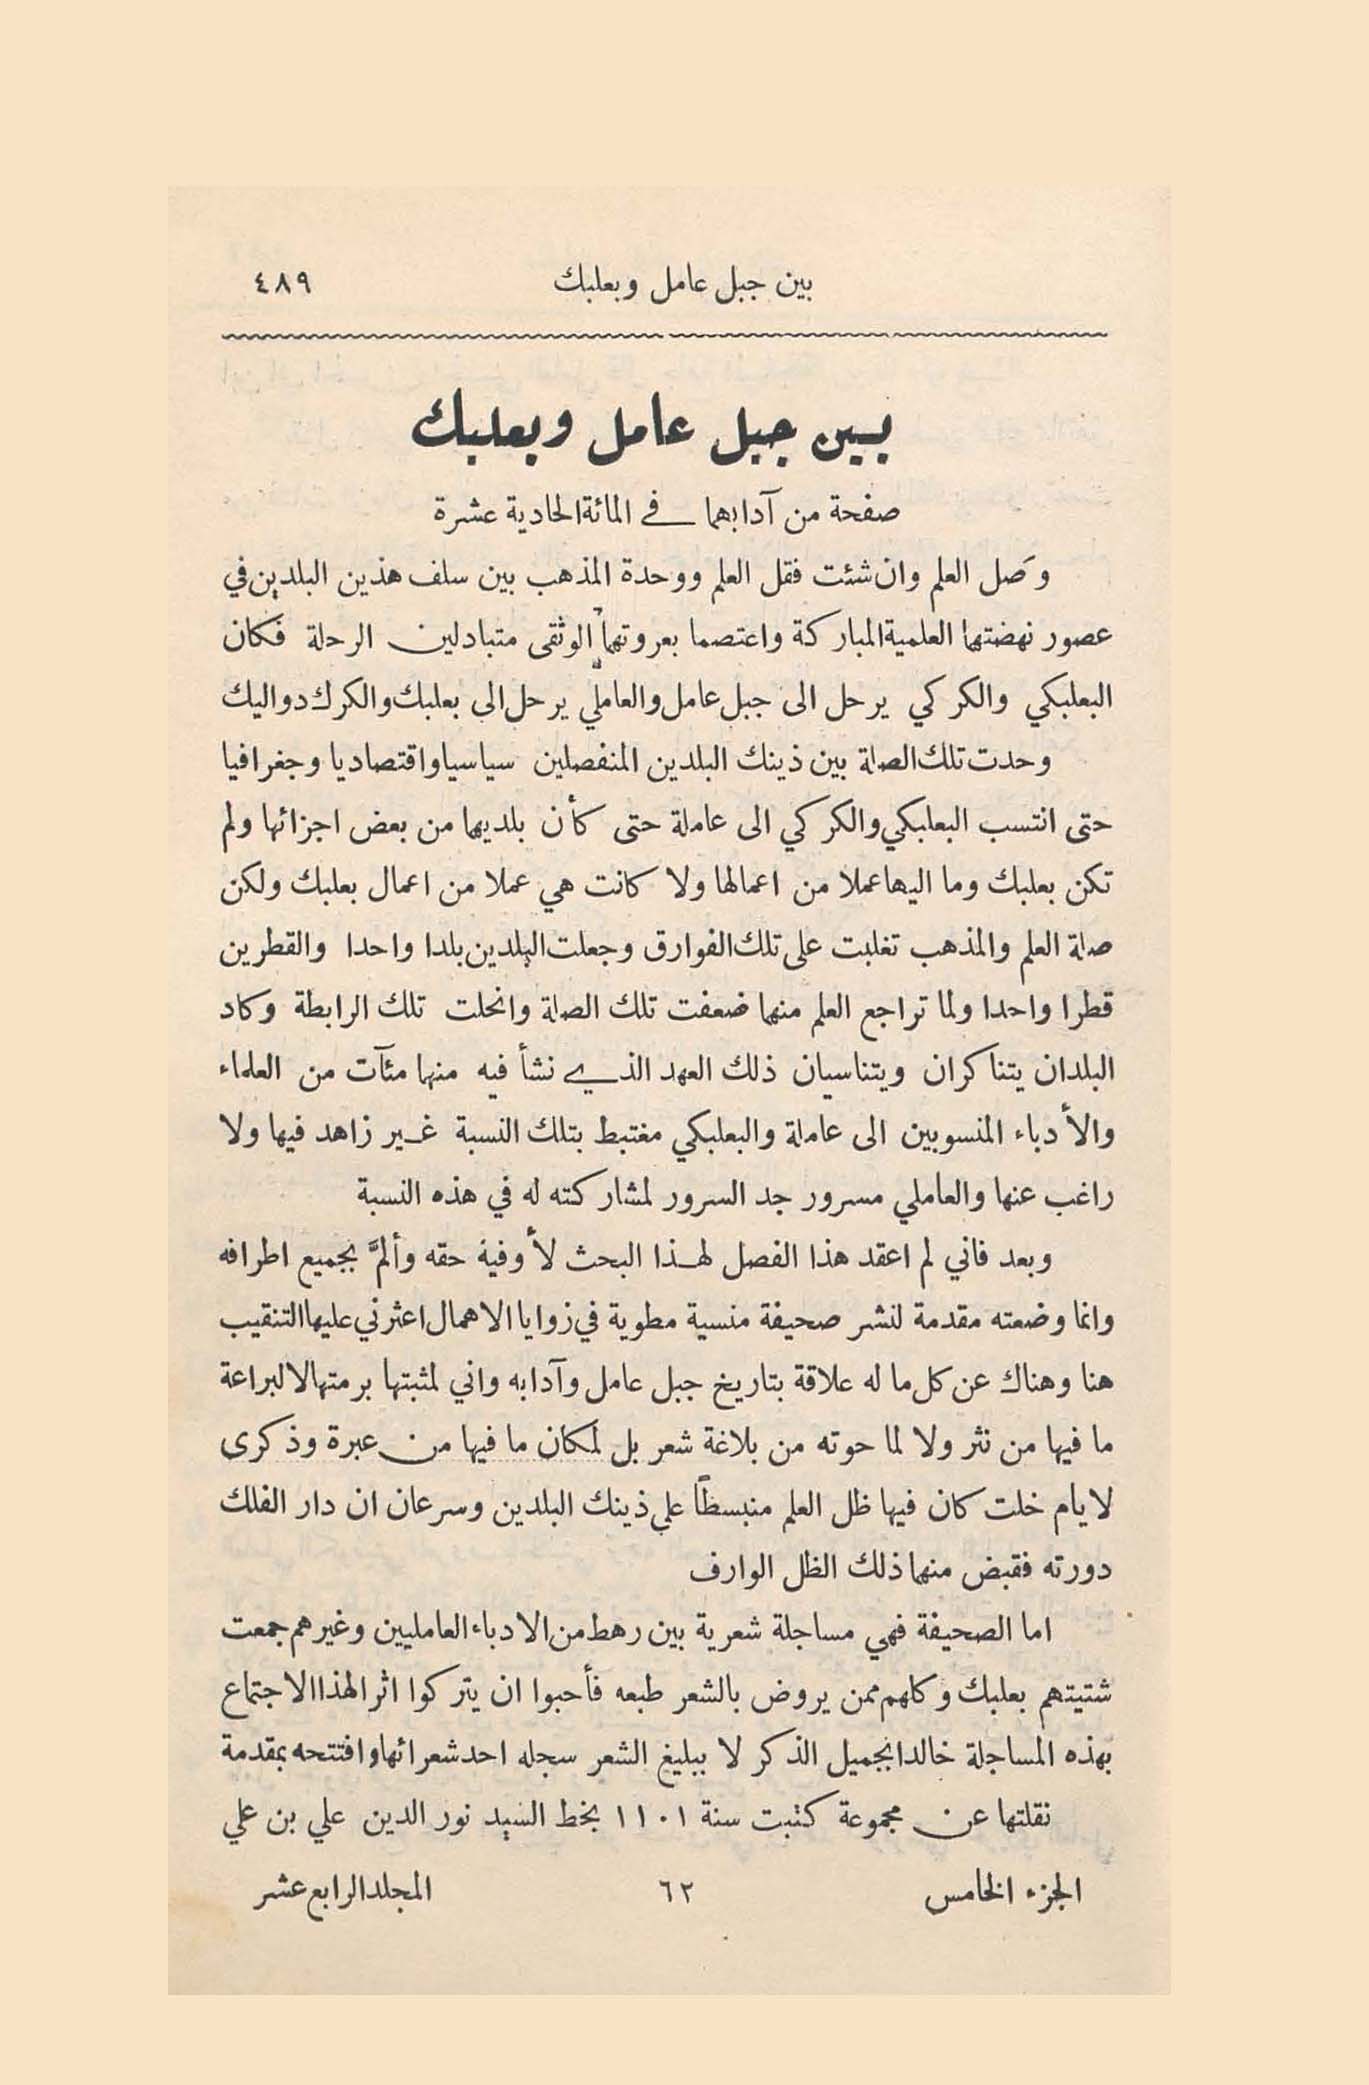 بين جبل عامل وبعلبك ٤٨٩
بين جبل عامل وبعلبك
صفحة من آدابهما في المائة الحادية عشرة
وَصل العلم وان شئت فقل العلم ووحدة المذهب بين سلف هذين البلدين في
عصور نهضتهما العلمية المباركة واعتصما بعروتهما الوثقى متبادلين الرحلة فكان
البعلبكي والكركي يرحل الى جبل عامل والعاملي يرحل الى بعلبك والكرك دواليك
وحدت تلك الصلة بين ذينك البلدين المنفصلين سياسيا واقتصاديا وجغرافيا
حتى انتسب البعلبكي والكركي الى عاملة حتى كأن بلديهما من بعض اجزائها ولم
تكن بعلبك وما اليها عملا من اعمالها ولا كانت هي عملا من اعمال بعلبك ولكن
صلة العلم والمذهب تغلبت على تلك الفوارق وجعلت البلدين بلدا واحدا والقطرين
قطرا واحدا ولما تراجع العلم منهما ضعفت تلك الصلة وانحلت تلك الرابطة وكاد
البلدان يتناكران ويتناسيان ذلك العهد الذي نشأ فيه منهما مئآت من العلماء
والأدباء المنسوبين الى عاملة والبعلبكي مغتبط بتلك النسبة غير زاهد فيها ولا
راغب عنها والعاملي مسرور جد السرور لمشاركته له في هذه النسبة
وبعد فاني لم اعقد هذا الفصل لهذا البحث لأوفيه حقه وألمَّ بجميع اطرافه
وانما وضعته مقدمة لنشر صحيفة منسية مطوية في زوايا الاهمال اعثرني عليها التنقيب
هنا وهناك عن كل ما له علاقة بتاريخ جبل عامل وآدابه واني لمثبتها برمتها لا لبراعة
ما فيها من نثر ولا لما حوته من بلاغة شعر بل لمكان ما فيها من عبرة وذكرى
لايام خلت كان فيها ظل العلم منبسطاً على ذينك البلدين وسرعان ان دار الفلك
دورته فقبض منهما ذلك الظل الوارف
اما الصحيفة فهي مساجلة شعرية بين رهط من الادباء العامليين وغيرهم جمعت
شتيتهم بعلبك وكلهم ممن يروض بالشعر طبعه فأحبوا ان يتركوا اثرا لهذا الاجتماع
بهذه المساجلة خالدا بجميل الذكر لا ببليغ الشعر سجله احد شعرائها وافتتحه بمقدمة
نقلتها عن مجموعة كتبت سنة ١١٠١ بخط السيد نور الدين علي بن علي
الجزء الخامس ٦٢ المجلد الرابع عشر